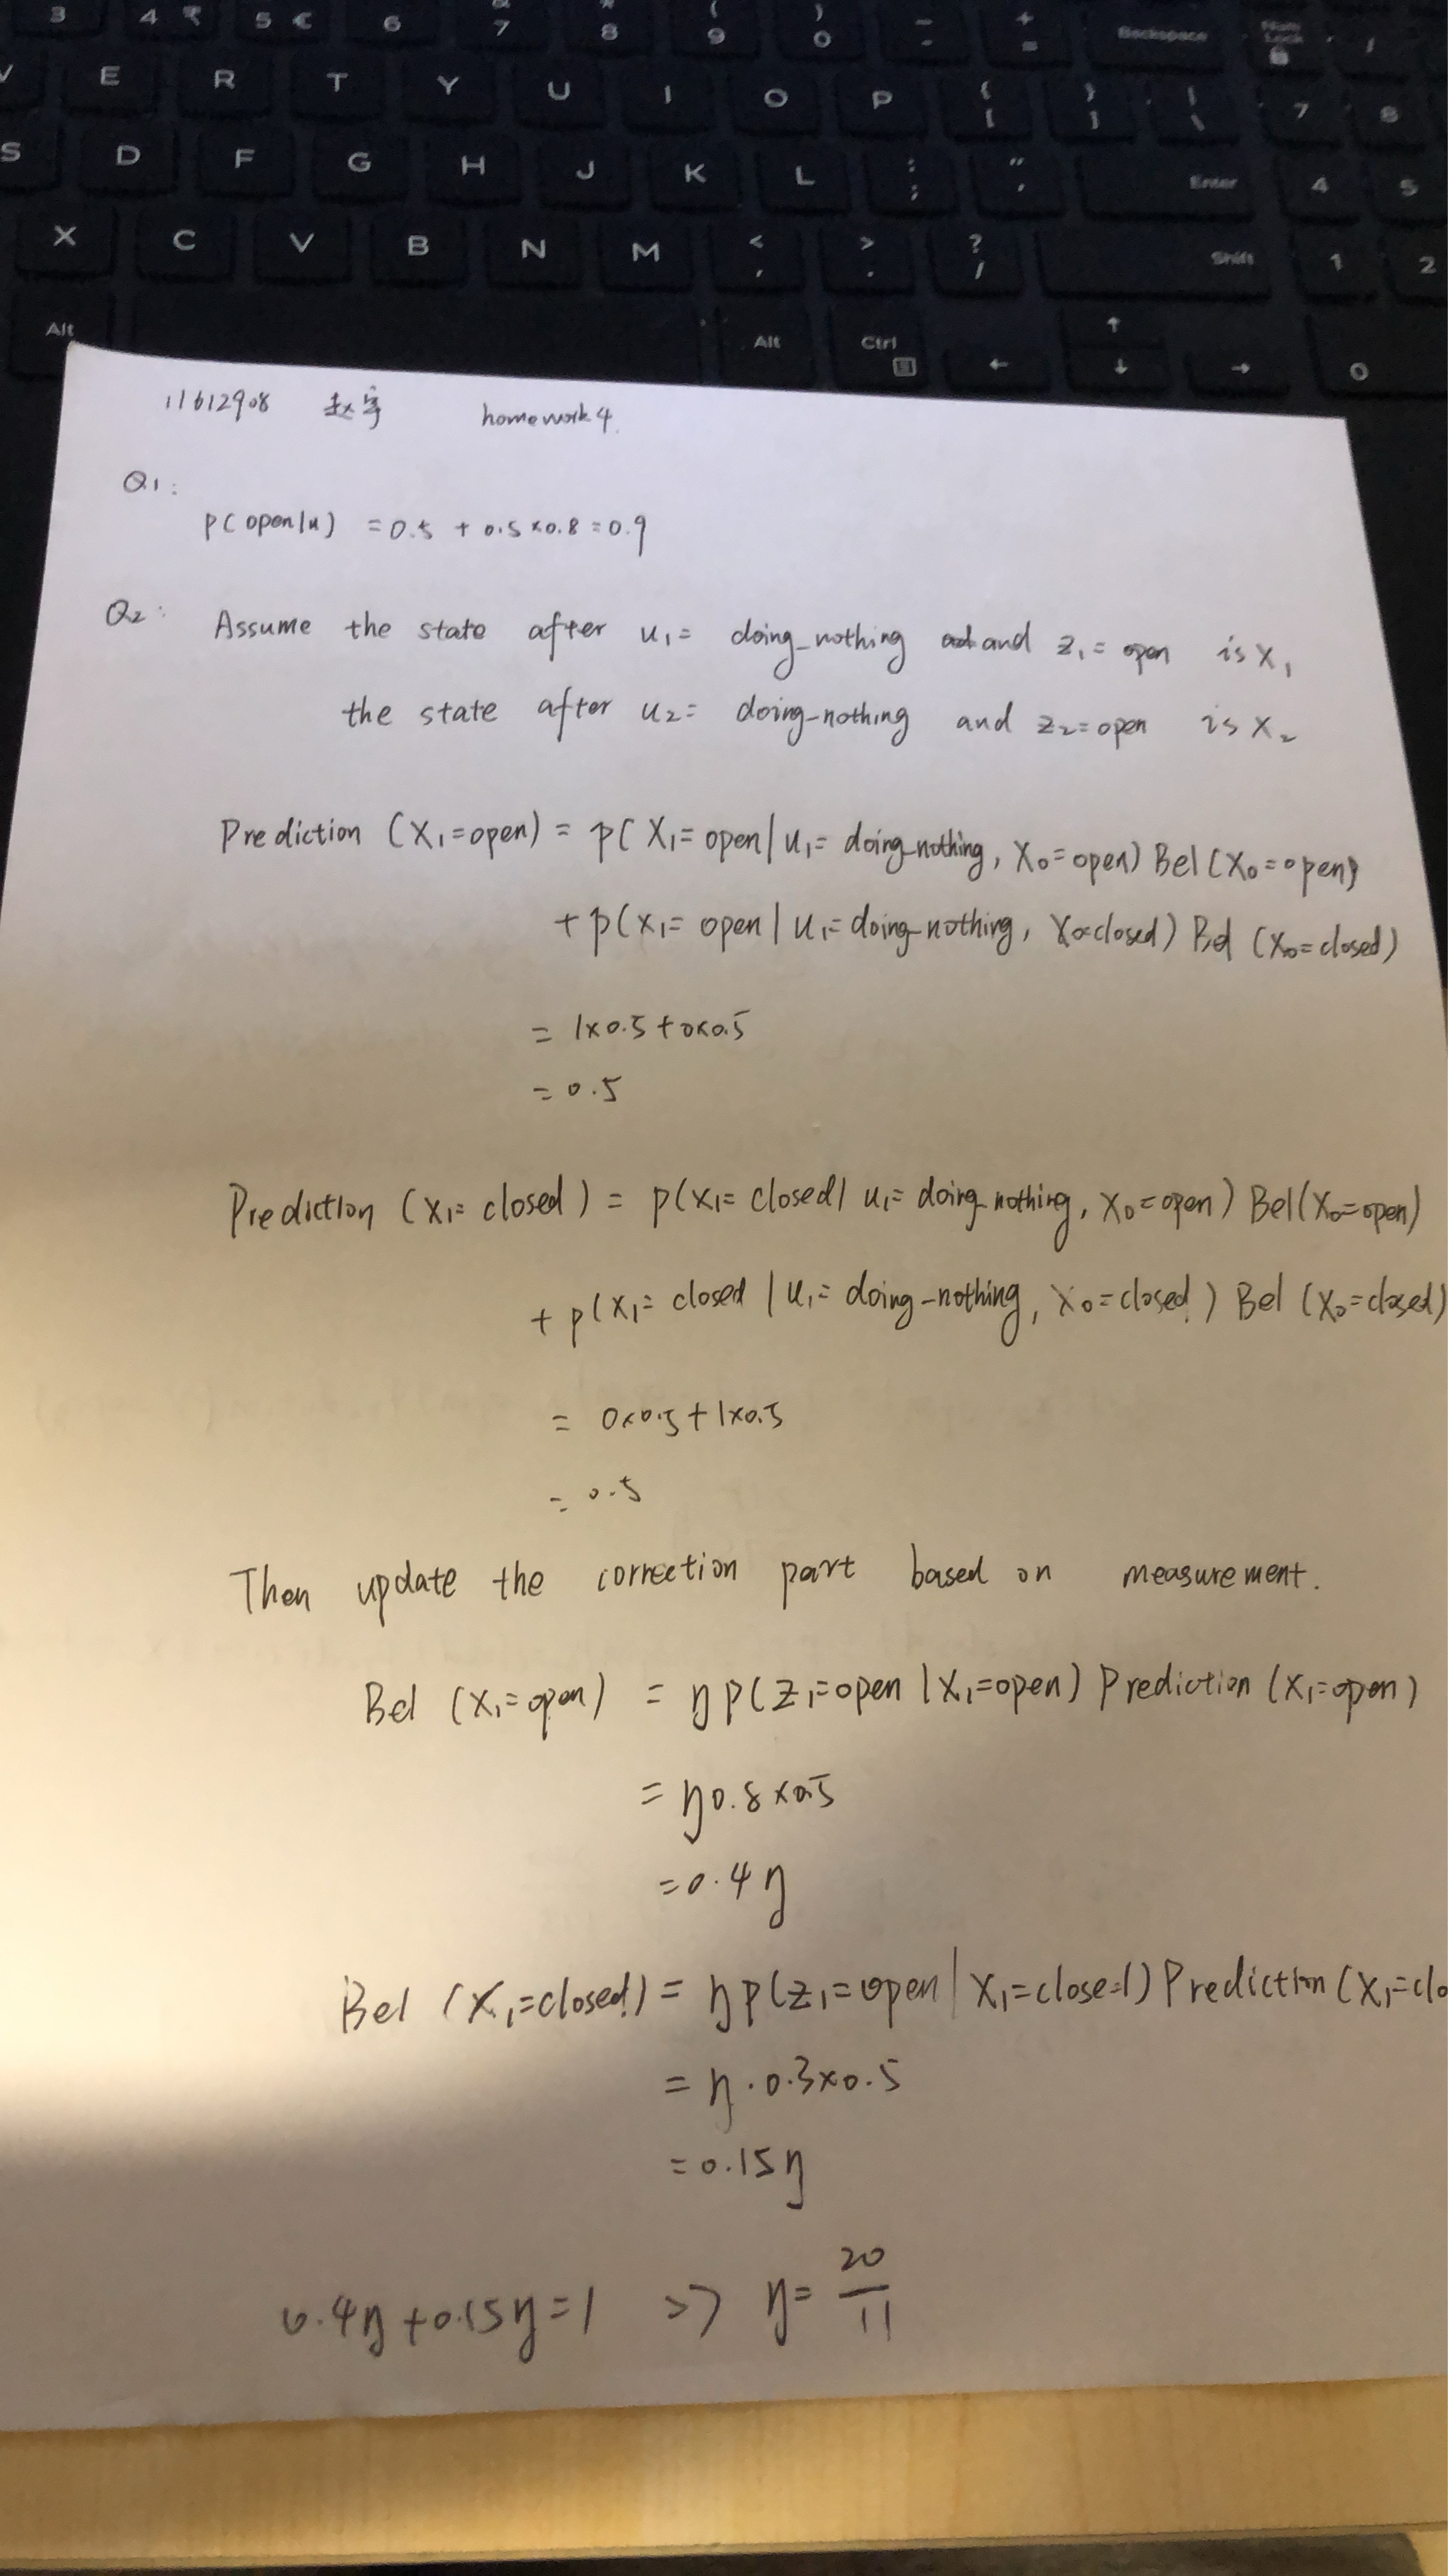 3 4 ₹ 5 € 6 & 7 * 8 ( 9 ) 0 _ - + = Backspace Num Lock /
E R T Y U I O P { [ } ] | \ 7 8
S D F G H J K L : ; " ' Enter 4 5
X C V B N M < , > . ? / Shift 1 2
Alt Alt Ctrl ↑ ← ↓ → 0
11612908 homework 4
Q1:
p(open|u) = 0.5 + 0.5×0.8=0.9
Q2: Assume the state after u₁= doing_nothing and z₁= open is x₁
the state after u₂= doing-nothing and z₂=open is x₂
Prediction (X₁=open) = p( X₁= open | u₁= doing_nothing, X₀=open) Bel (X₀=open)
+ p(x₁= open | u₁= doing_nothing, X₀=closed) Bel (X₀=closed)
= 1×0.5+0×0.5
= 0.5
Prediction (x₁= closed) = p(x₁= closed | u₁= doing_nothing, X₀=open) Bel(X₀=open)
+ p(x₁= closed | u₁= doing-nothing, X₀=closed) Bel (X₀=closed)
= 0×0.5+1×0.5
= 0.5
Then update the correction part based on measurement.
Bel (x₁=open) = η p(z₁=open | x₁=open) Prediction (x₁=open)
= η0.8×0.5
=0.4η
Bel (X₁=closed) = η p(z₁=open | X₁=closed) Prediction (X₁=clo
= η·0.3×0.5
=0.15η
0.4η+0.15η=1 => η= 20/11